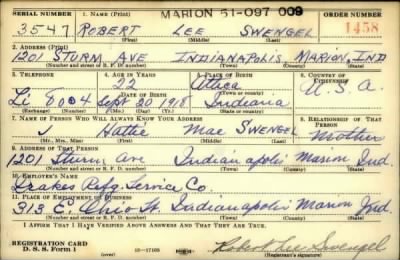 MARION 51-097 009
SERIAL NUMBER 1. NAME (Print) ORDER NUMBER
3547 ROBERT LEE SWENGEL 1458
(First) (Middle) (Last)
2. ADDRESS (Print)
1201 STURM AVE INDIANAPOLIS MARION, IND
(Number and street or R. F. D. number) (Town) (County) (State)
3. TELEPHONE 4. AGE IN YEARS 5. PLACE OF BIRTH 6. COUNTRY OF CITIZENSHIP
22 Attica
Li 8004 Sept 20 1918 Indiana U.S.A.
(Exchange) (Number)
7. NAME OF PERSON WHO WILL ALWAYS KNOW YOUR ADDRESS 8. RELATIONSHIP OF THAT PERSON
Hattie Mae SWENGEL Mother
(Mr., Mrs., Miss) (First) (Middle) (Last)
9. ADDRESS OF THAT PERSON
1201 Sturm Ave Indianapolis Marion Ind.
(Number and street or R. F. D. number) (Town) (County) (State)
10. EMPLOYER'S NAME
Drakes Refg. Service Co.
11. PLACE OF EMPLOYMENT OR BUSINESS
313 E. Ohio St. Indianapolis Marion Ind.
(Number and street or R. F. D. number) (Town) (County) (State)
I AFFIRM THAT I HAVE VERIFIED ABOVE ANSWERS AND THAT THEY ARE TRUE.
REGISTRATION CARD
D. S. S. Form 1 (over) 16-17105 Robert Lee Swengel
(Registrant's signature)